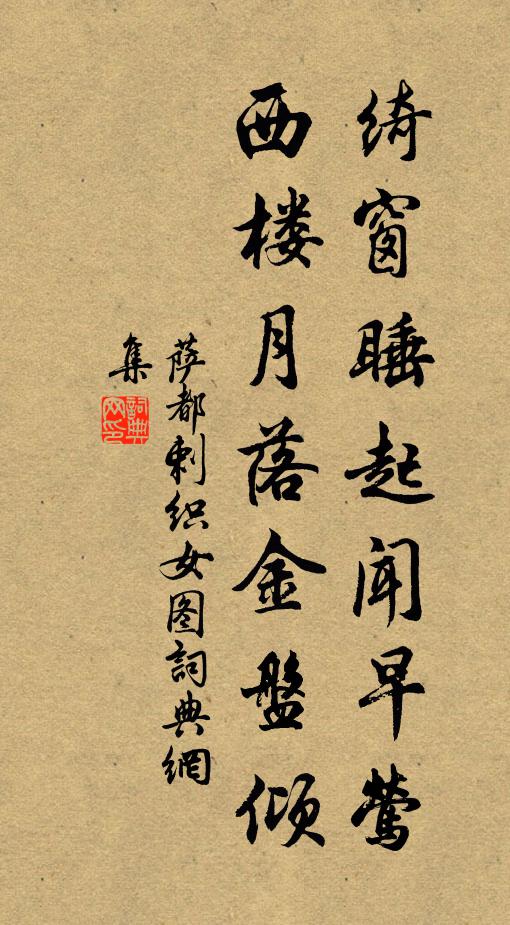 绮窗睡起闻早莺
西楼月落金盘倾
萨都刺织女图詞典網
集
詞典網印